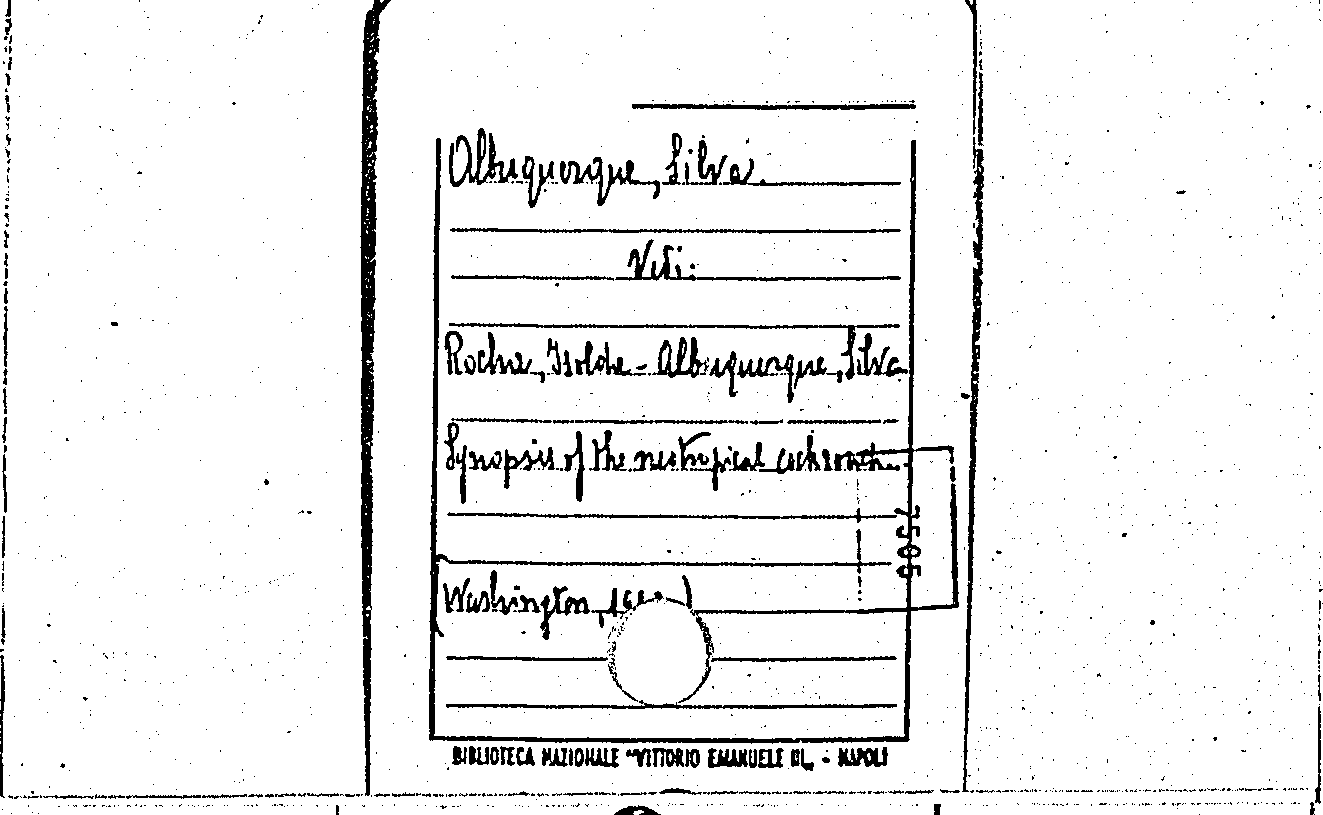 Albuquerque, Silva.
Vedi:
Rocha, Isolda - Albuquerque, Silva
Synopsis of the neotropical cockroach..
7505
(Washington,
BIBLIOTECA NAZIONALE "VITTORIO EMANUELE III„ - NAPOLI